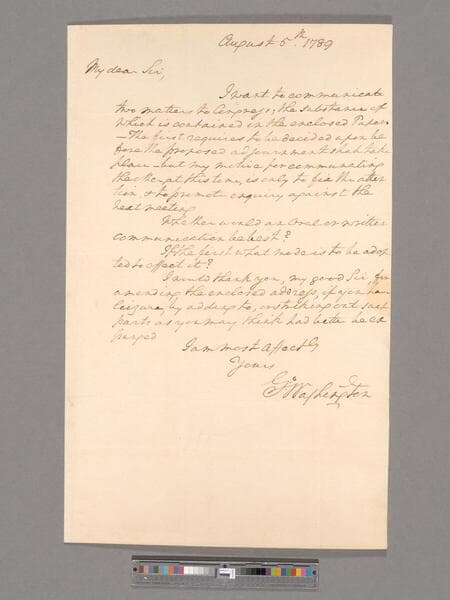 August 5th. 1789
My dear Sir,
I want to communicate
two matters to Congress, the substance of
which is contained in the enclosed Paper.
—The first requires to be decided upon be
fore the proposed adjournment shall take
place—but my motive for communicating
the other at this time, is only to fix the atten
tion & to promote enquiry against the
next meeting
Whether would an Oral or written
communication be best?
If the first what mode is to be adop
ted to effect it?
I would thank you, my good Sir for
amending the enclosed address, if you have
leizure, by adding to, or striking out such
parts as you may think had better be ex
punged
I am most Affectly
Yours
Go. Washington